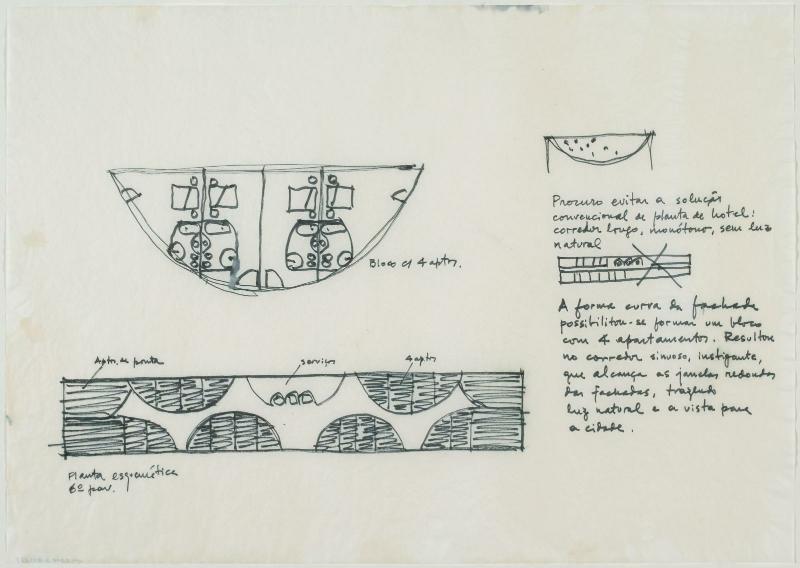 Procuro evitar a solução
convencional de planta de hotel:
corredor longo, monótono, sem luz
natural
Bloco c/ 4 aptos.
A forma curva da fachada
possibilitou-se formar um bloco
com 4 apartamentos. Resultou
no corredor sinuoso, instigante,
que alcança as janelas redondas
das fachadas, trazendo
luz natural e a vista para
a cidade.
Aptos. de ponta
serviços
4 aptos
Planta esquemática
6º pav.